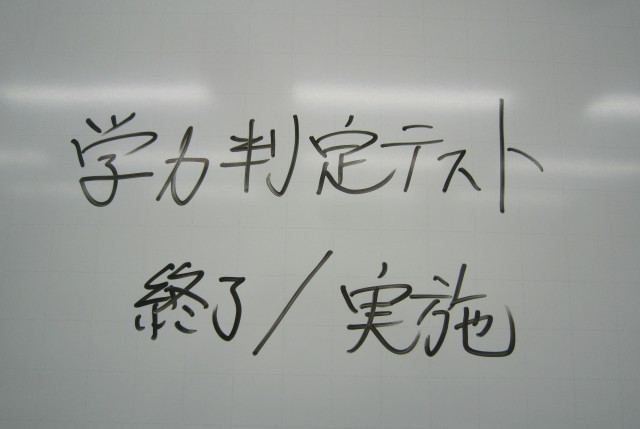 学力判定テスト
終了/実施